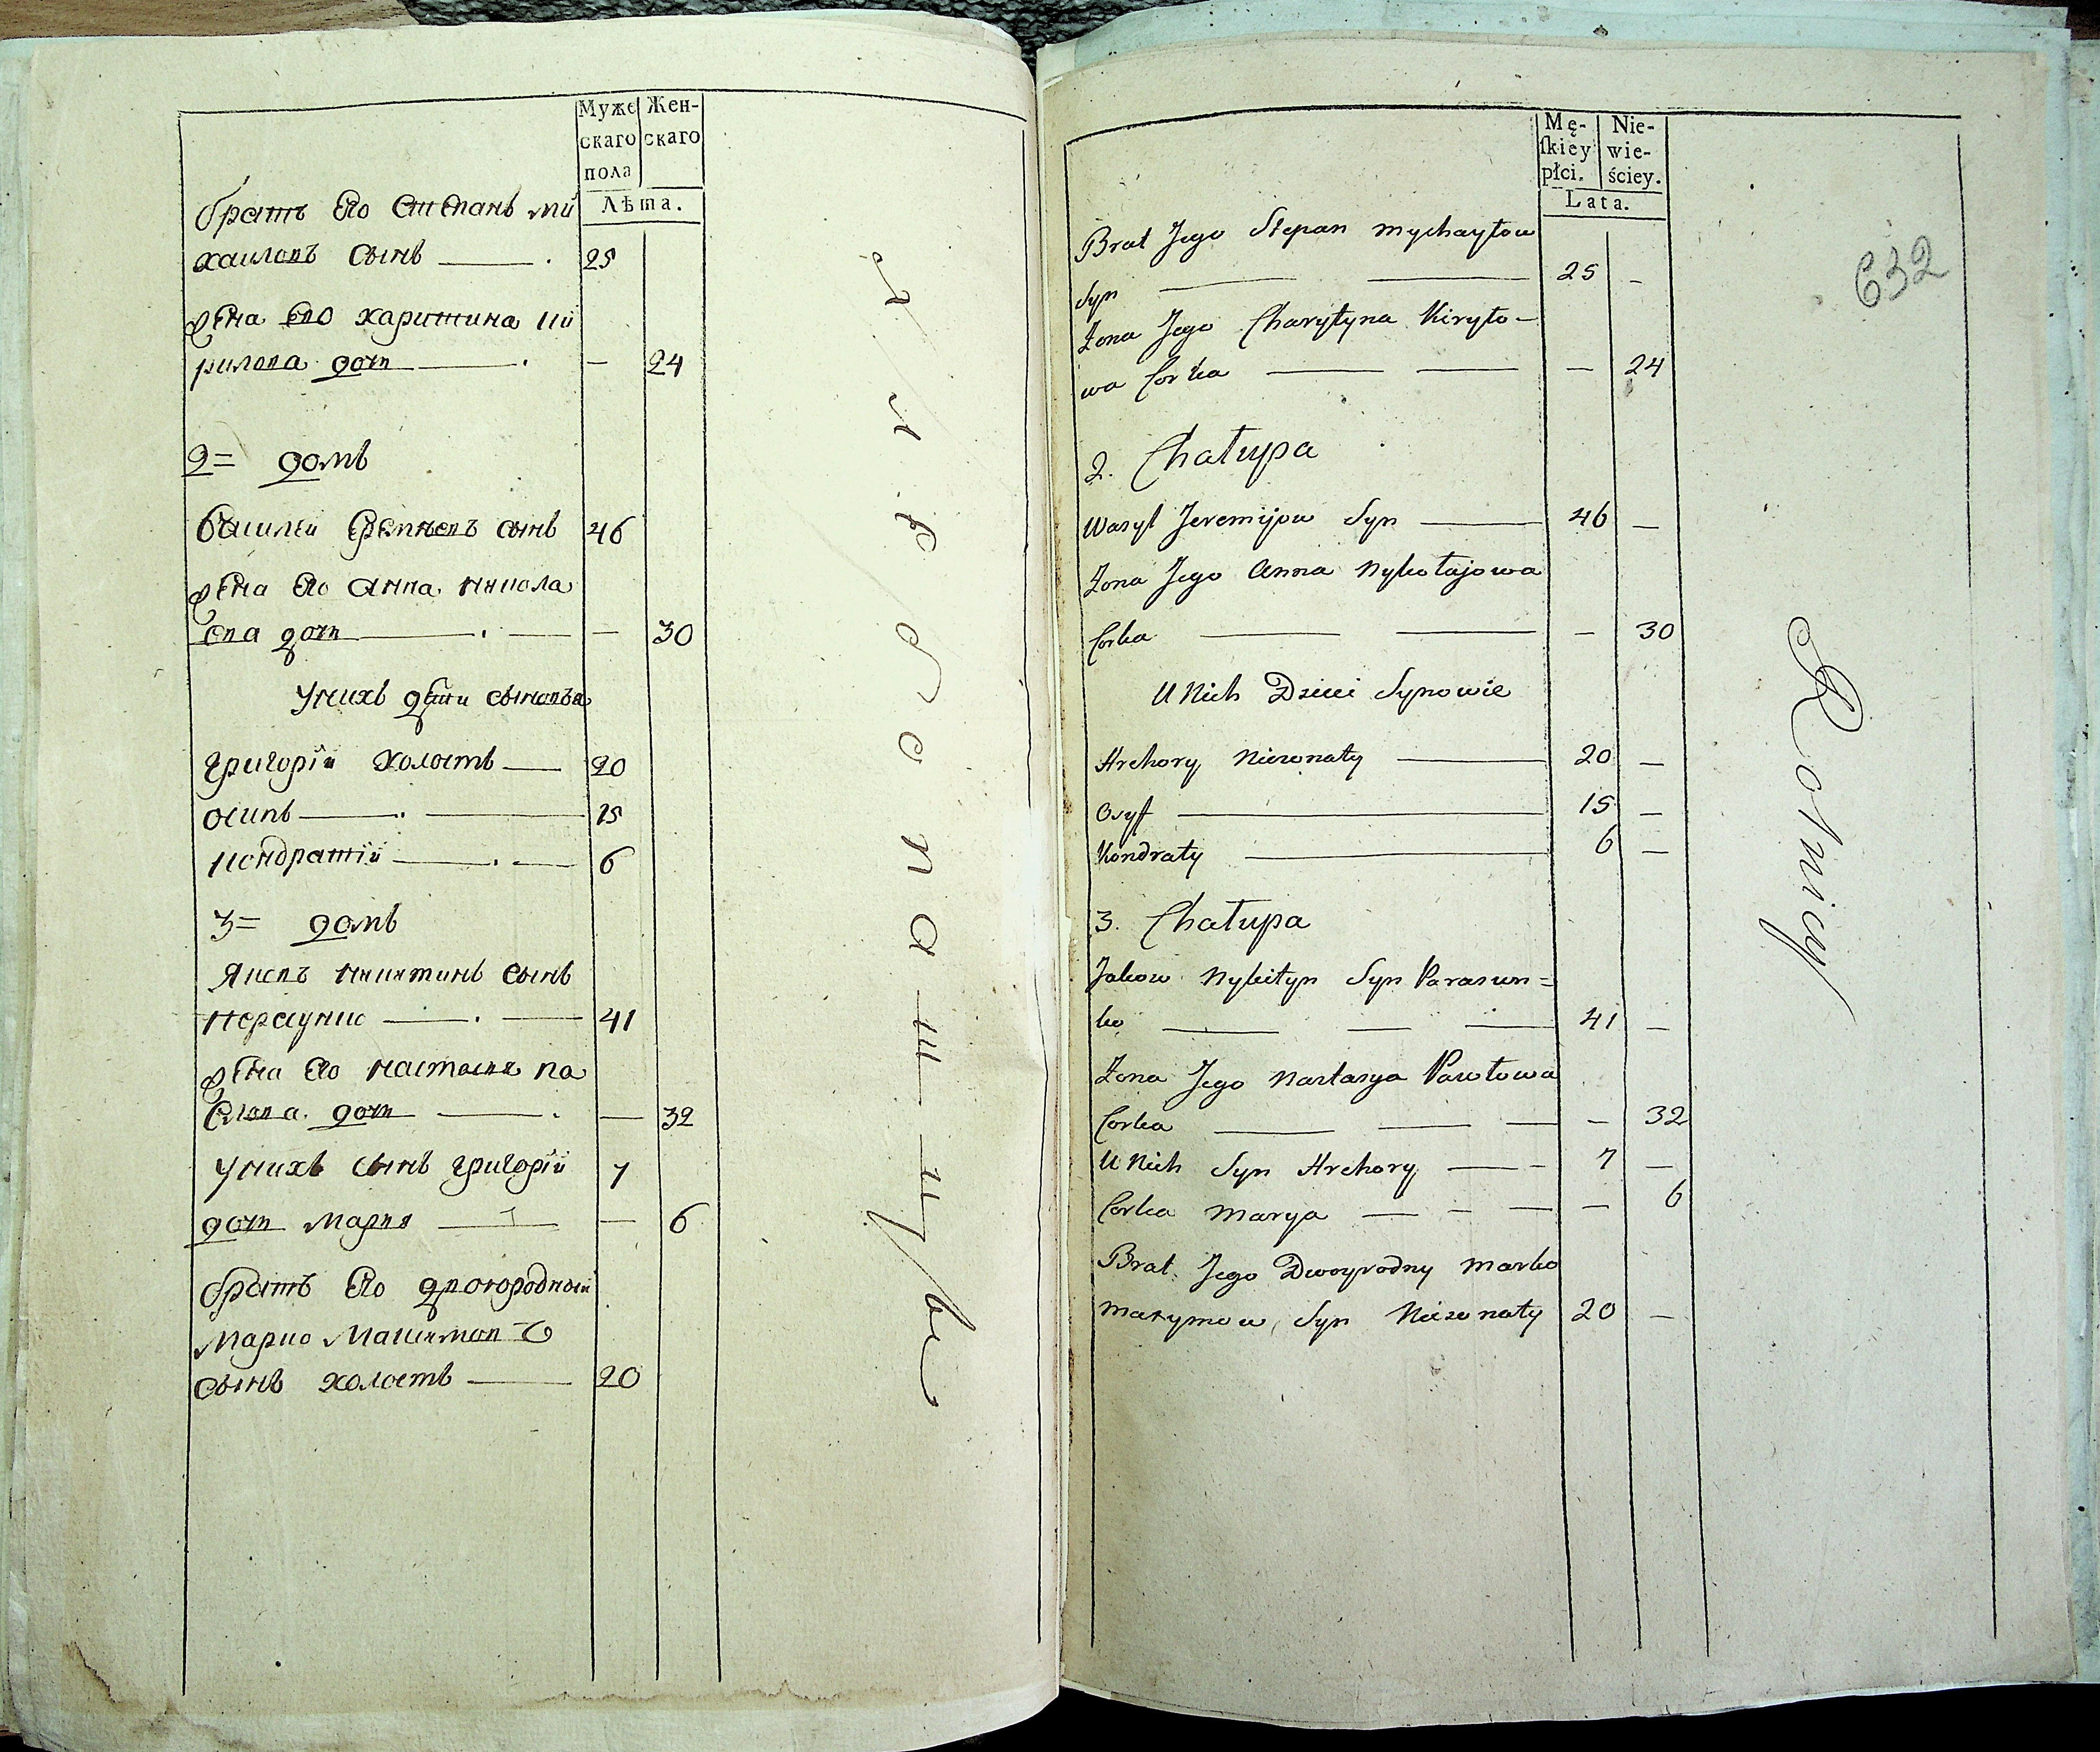 Муже Жен-
скаго скаго
пола
Лѣта.
братъ Его Степанъ ми
хаиловъ сынъ 25
жена Его харитина ки
рилова дочь — 24
2= домъ
василеи Еремѣевъ сынъ 46
жена Его Анна никола
Ева дочь — 30
У нихъ дѣти сыновья
григорїи холостъ 20
осипъ 15
кондратїи 6
3= домъ
Яковъ никитинъ сынъ
Парасунко 41
жена Его настасия па
влова дочь — 32
У нихъ сынъ григорїи 7
дочь мария — 6
братъ Его двоюродныи
марко Максимовъ
сынъ холостъ 20
Mę- Nie-
ſkiey wie-
płci. ściey.
Lata.
632
Brat Jego Stepan Mychayłow
Syn 25 —
Żona Jego Charytyna Kiryło-
wa Corka — 24
2. Chałupa
Wasyl Jeremijow Syn 46 —
Żona Jego Anna Nykołajowa
Corka — 30
U Nich Dzieci Synowie
Hrehory Nieżonaty 20 —
Osyf 15 —
Kondraty 6 —
3. Chałupa
Jakow Nykityn Syn Parasun=
ko 41 —
Żona Jego Nastasya Pawłowa
Corka — 32
U Nich Syn Hrehory 7 —
Corka Marya — 6
Brat Jego Dwoyrodny Marko
Maxymow Syn Nieżonaty 20 —
Rolnicy